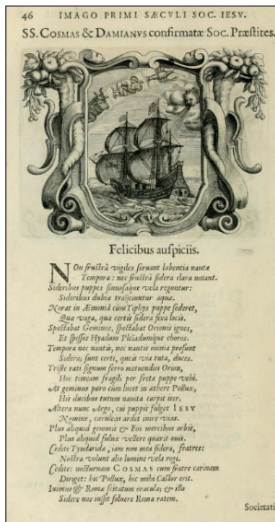 46 IMAGO PRIMI SÆCVLI SOC. IESV.
SS. COSMAS & DAMIANVS confirmatæ Soc. Præstites.
Felicibus auspiciis.
NOn frustrà vigiles servant labentia nautæ
Tempora: nec frustrà sidera clara notant.
Sideribus puppes sinuosaque vela reguntur:
Sideribus dubiæ traijciuntur aquæ.
Norat in Æmoniâ cùm Tiphys puppe sederet,
Quæ vaga, quæ certis sidera fixa locis.
Spectabat Geminos, spectabat Orionis ignes,
Et Hyadum Pleiadumque choros.
Tempora nec nautis, nec nautis omnia possunt
Sidera; sunt certi, queis via tuta, duces.
Triste rati signum ferro metuendus Orion,
Hoc timeam fragili per freta puppe vehi.
At geminus puro cùm lucet in æthere Pollux,
His ducibus totum nauita carpit iter.
Altera nunc Argo, cui puppi fulget IESV
Nomine, cæruleas ardet inire vias.
Plus aliquid gemmis & Eois mercibus orbis,
Plus aliquid fuluo vellere quærit onus.
Cedite Tyndaridæ, iam non mea sidera, fratres:
Nostra volunt alio lumine vela regi.
Cedite: nocturnam COSMAS cum fratre carinam
Diriget: hic Pollux, hic mihi Castor erit.
& Roma &
Sidere nos iussit soluere Roma ratem.
Societati